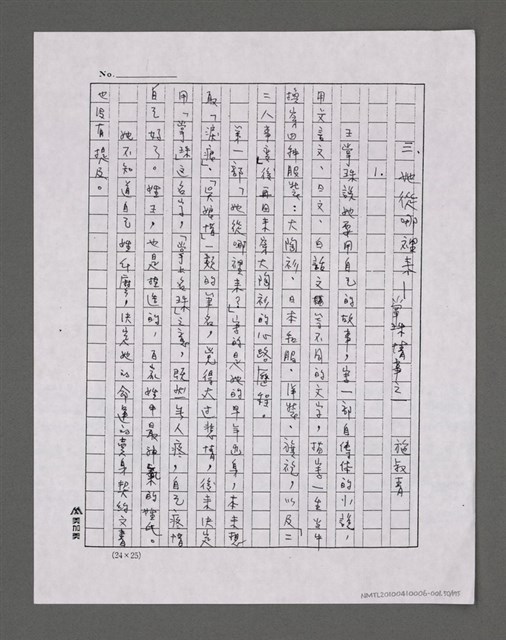 No.
三、她從哪裡來—掌珠情事之一 施叔青
1.
王掌珠說她要用自己的故事，寫一部自傳体的小說，
用文言文、日文、白話文等不同的文字，描寫一生當中
換穿四種服裝：大陶衫、日本和服、洋裝、旗袍，以及「二
二八事變」後再回來穿大陶衫的心路歷程。
第一部「她從哪裡來？」寫的是她的早年出身，本來想
取「淚痕」、「吳娘惜」一類的筆名，覺得太过悲情，後來決定
用「掌珠」這名字，「掌上名珠」之意，既然無人疼，自己疼惜
自己好了。姓王，也是捏造的，百家姓中最神氣的姓氏。
她不知道自己姓什麼，決定她的命運的賣身契約文書
也沒有提及。
美加美
(24×25)
NMTL20100410006-001